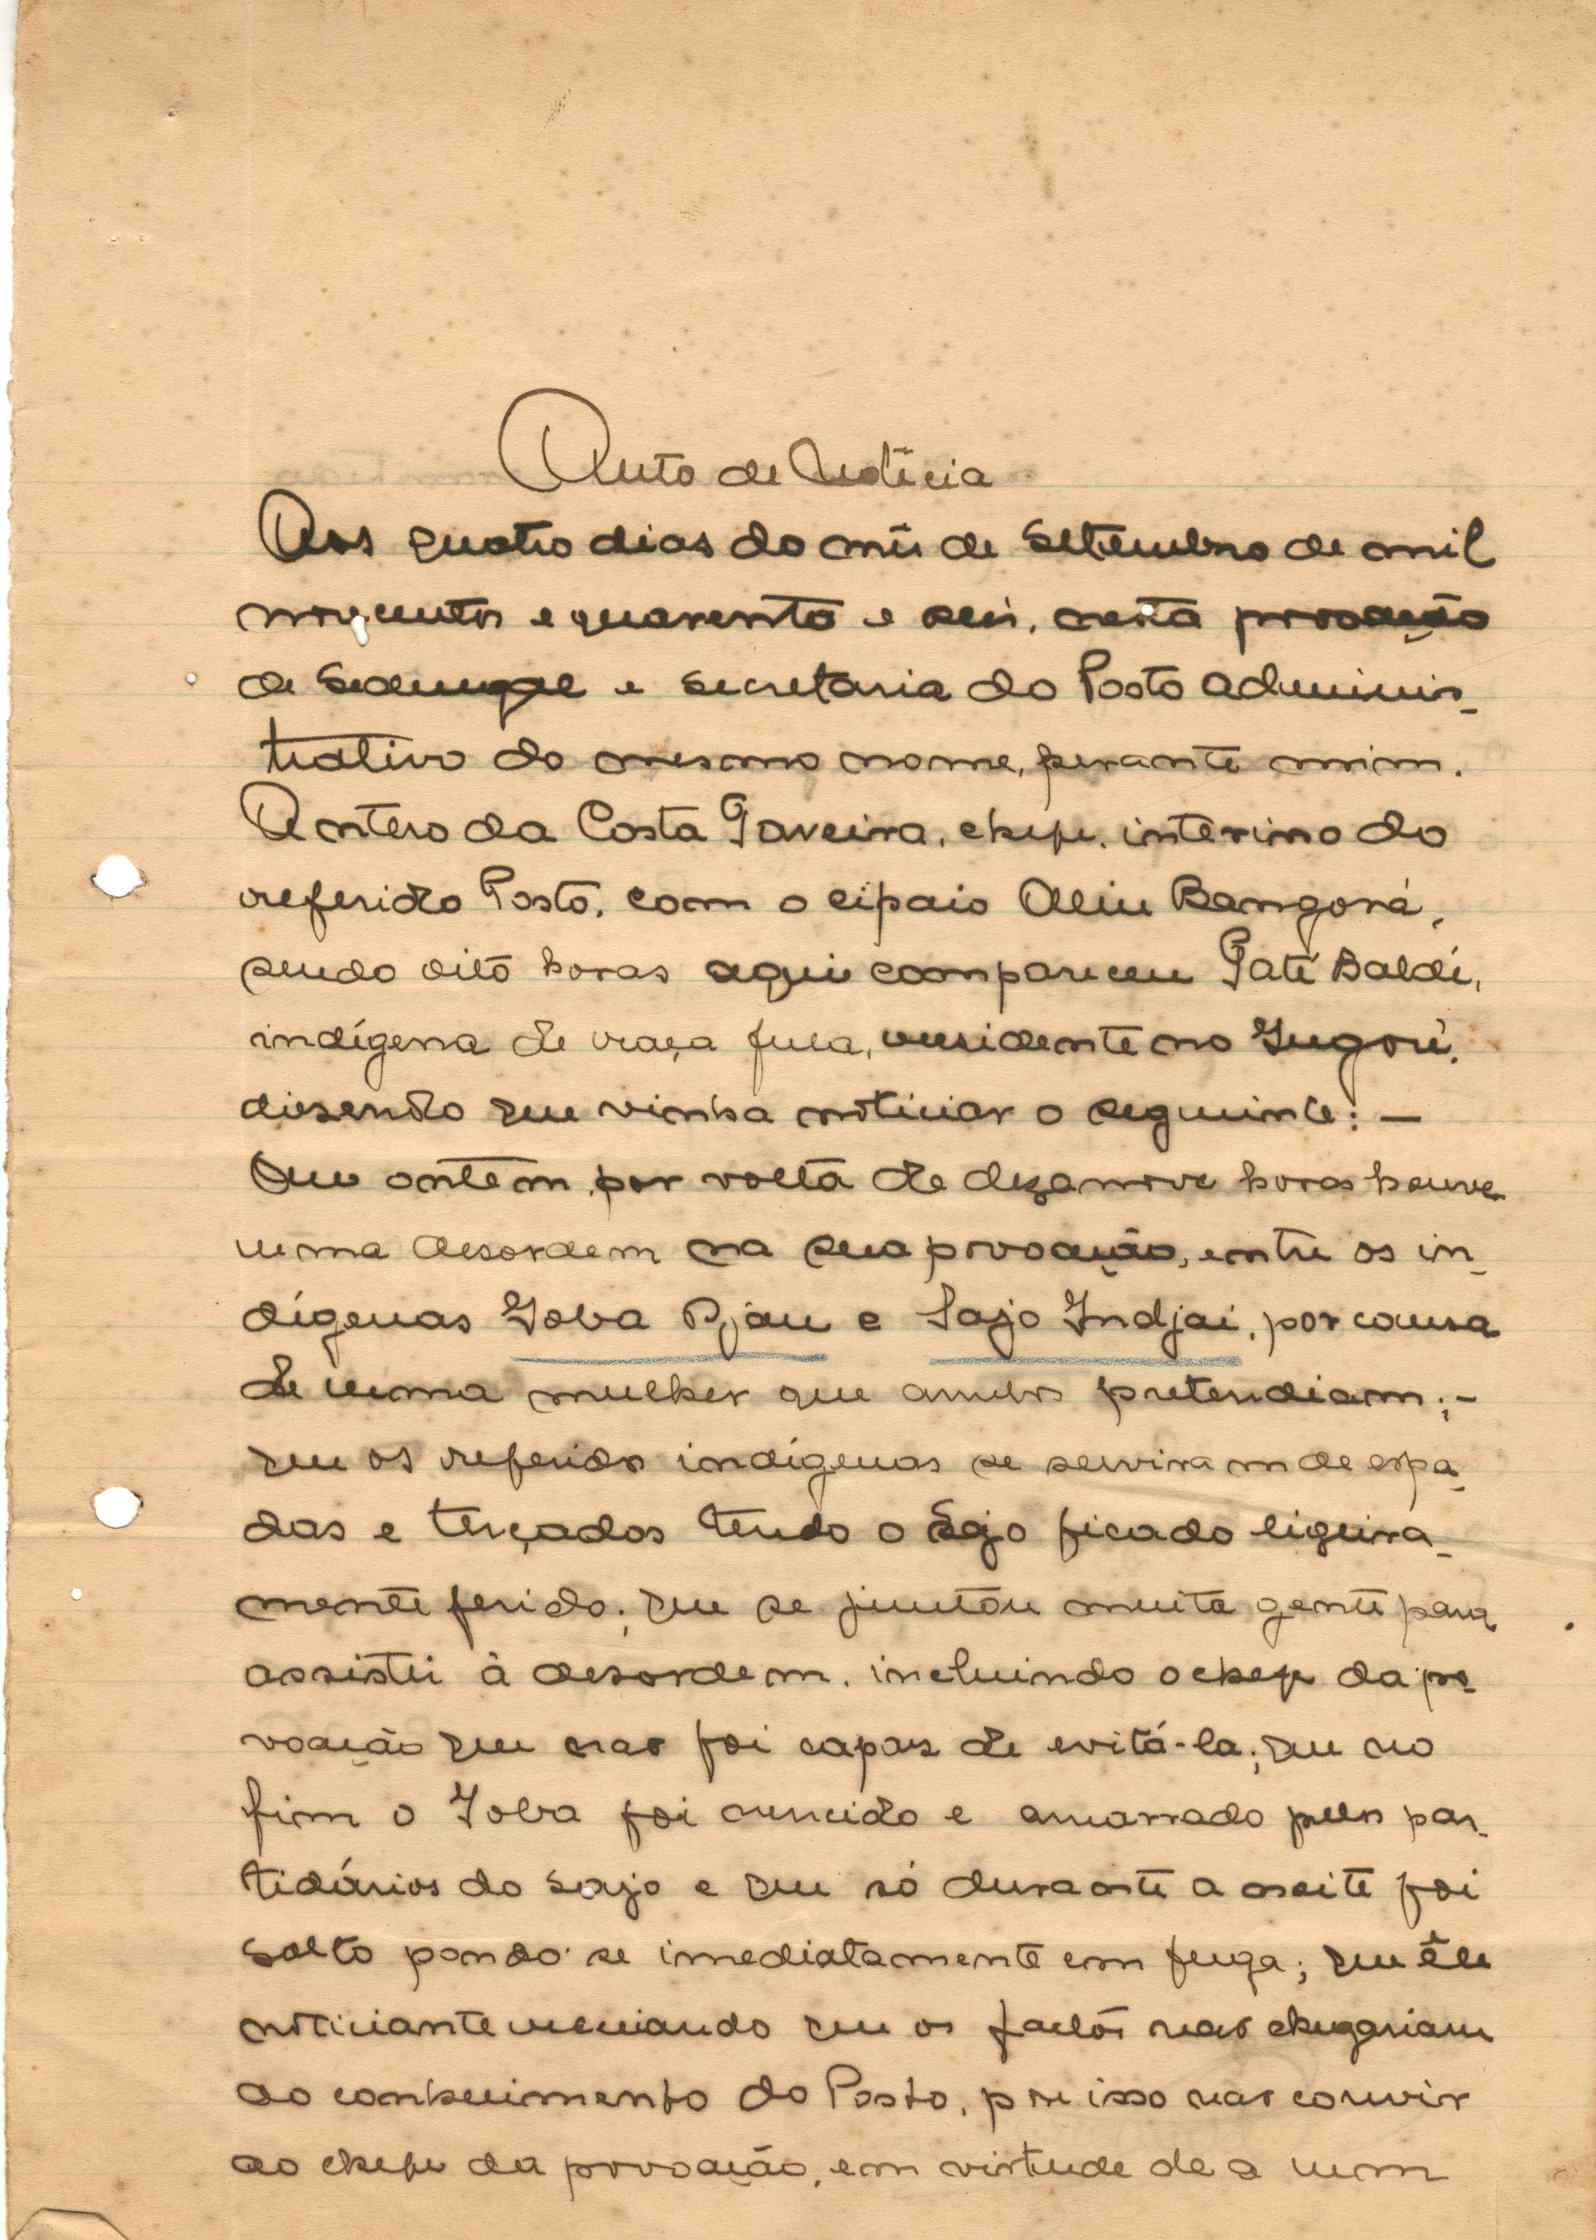 Auto de Notícia
Aos quatro dias do mês de Setembro de mil
novecentos e quarenta e seis, nesta povoação
de Sedengal e secretaria do Posto Adminis-
trativo do mesmo nome, perante mim,
Antero da Costa Gaveira, chefe, interino do
referido Posto, com o cipaio Aliu Bangorá,
sendo oito horas aqui compareceu Paté Baldé,
indígena de raça fula, residente no Ingoré,
disendo que vinha noticiar o seguinte: —
Que ontem, por volta de dezanove horas houve
uma desordem na sua povoação, entre os in-
dígenas Ioba Djau e Sajo Indjai, por causa
de uma mulher que ambos pretendiam; -
que os referidos indígenas se serviram de espa-
das e terçados tendo o Sajo ficado ligeira-
mente ferido; que se juntou muita gente para
assistir à desordem, incluindo o chefe da po-
voação que não foi capaz de evitá-la; que no
fim o Ioba foi vencido e amarrado pelos par-
tidários do Sajo e que só durante a noite foi
solto pondo-se imediatamente em fuga; que êle
noticiante receiando que os factos não chegariam
ao conhecimento do Posto, por isso não convir
ao chefe da povoação, em virtude de a um